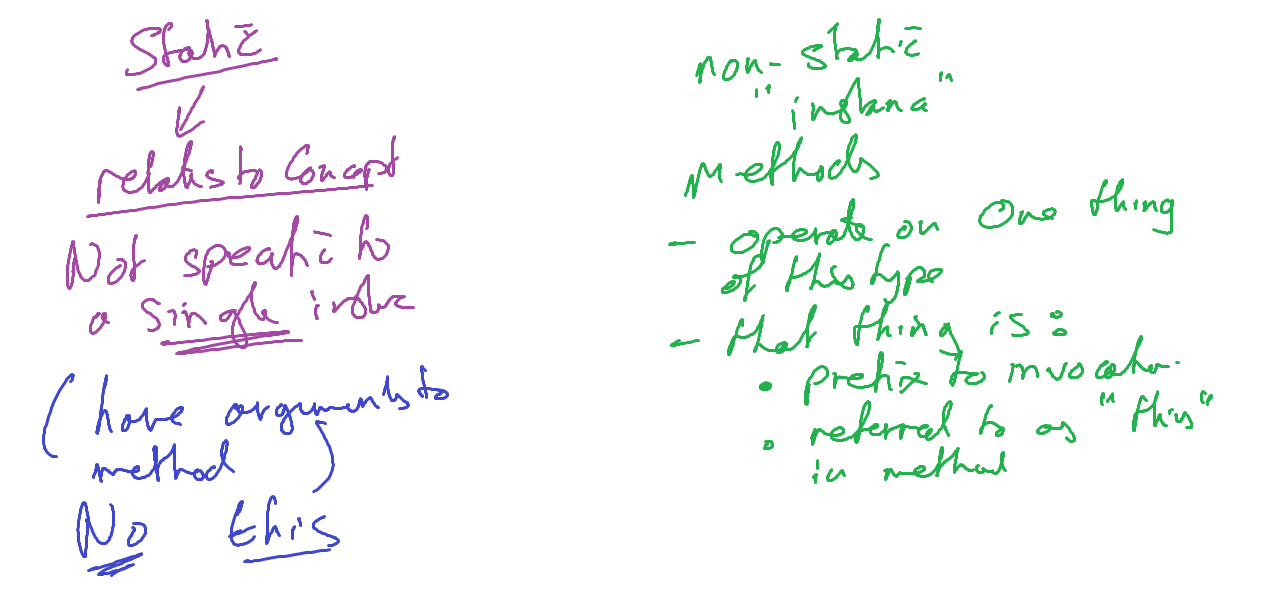 Static
relates to Concept
Not specific to
a single
(have arguments to
method)
No this
non-static
"instance"
Methods
- operate on One thing
of this type
- that thing is:
• prefix to invocation
• referred to as "this"
in method